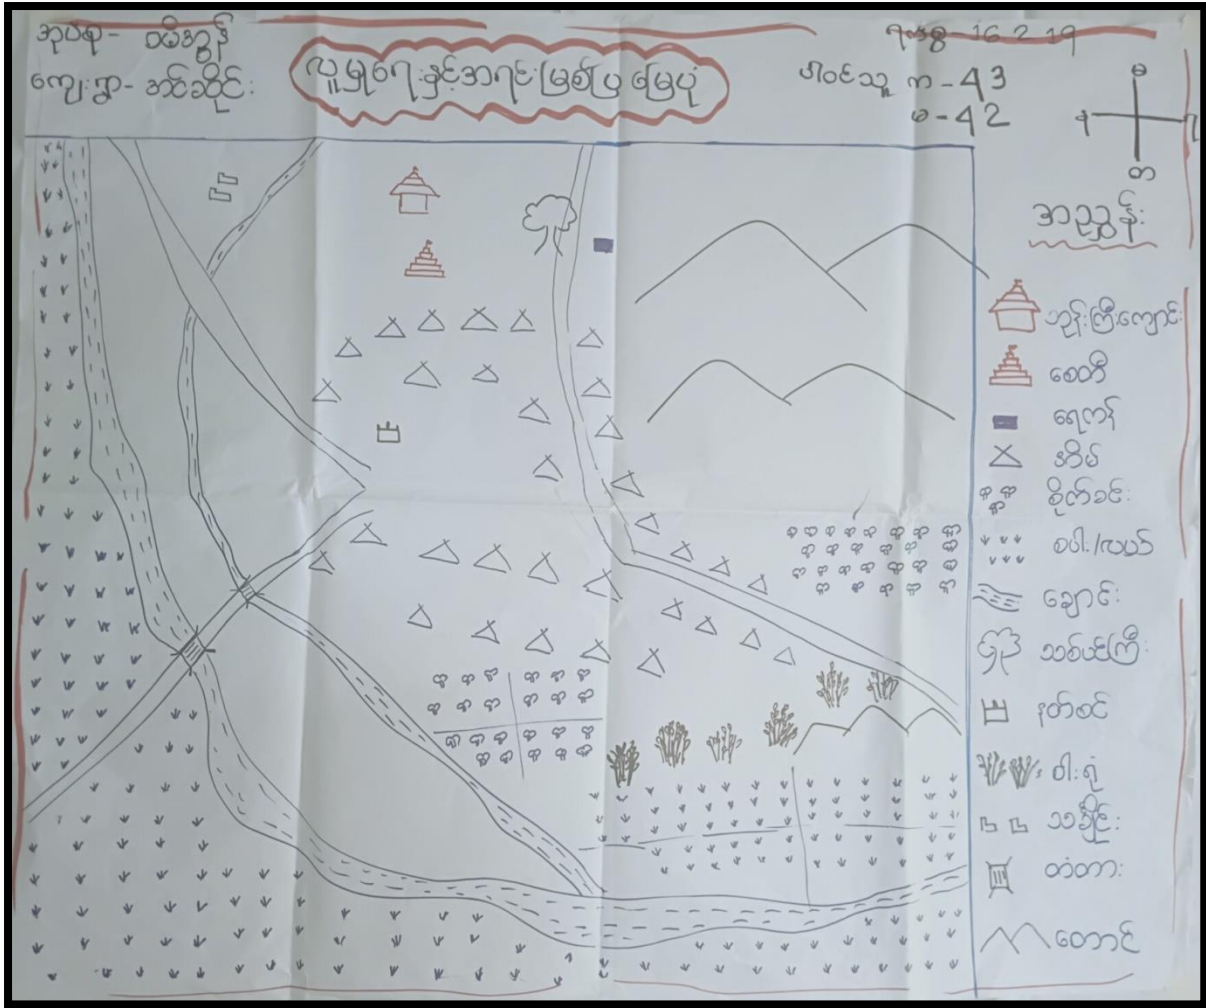 အုပ်စု- ဝမ်အွန်
ကျေးရွာ- အင်ဆိုင်း
လူမှုရေးနှင့်အရင်းမြစ်ပြမြေပုံ
ရက်စွဲ- 16 2 19
ပါဝင်သူ က-43
မ-42
မ
န
တ
အညွှန်း
ဘုန်းကြီးကျောင်း
စေတီ
ရေကန်
အိမ်
စိုက်ခင်း
စပါး/လယ်
ချောင်း
သစ်ပင်ကြီး
နတ်စင်
ဝါးရုံ
သင်္ချိုင်း
တံတား
တောင်